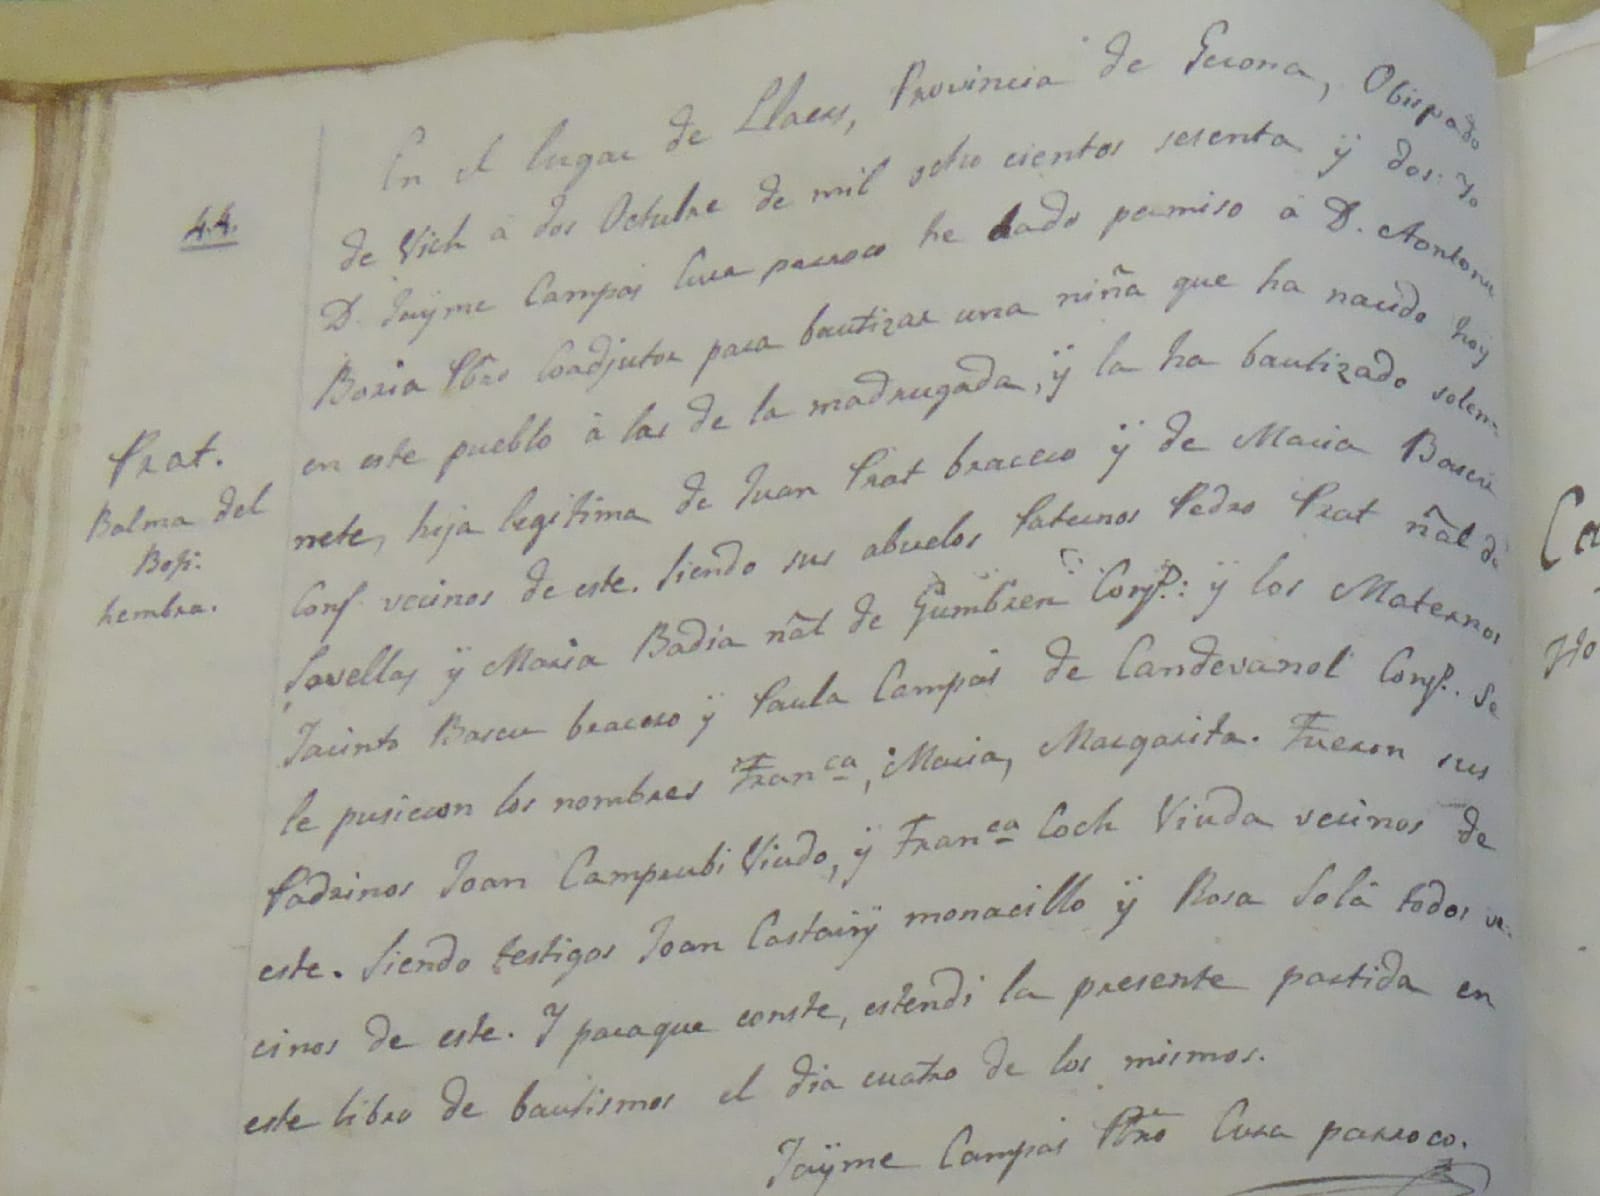 En el lugar de Llaers, Provincia de Gerona, Obispado
44.
de Vich á dos Octubre de mil ocho cientos sesenta ÿ dos: Yo
D. Jaÿme Campás Cura parroco he dado permiso á D. Antonio
Boria Pbro Coadjutor para bautizar una niña que ha nacido hoÿ
en este pueblo á las de la madrugada, ÿ la ha bautizado solem-
Prat.
Balma del
Bofi.
hembra.
nete, hija legitima de Juan Prat bracero ÿ de Maria
Cons. vecinos de este. Siendo sus abuelos Paternos Pedro Prat ñal de
Sovellas ÿ Maria Badia ñal de Gumbren Consp.: ÿ los Maternos
Jacinto bracero ÿ Paula Campás de Candevanol Consp. Se
le pusieron los nombres Franca, Maria, Margarita. Fueron sus
Padrinos Joan Camprubi Viudo, ÿ Franca Coch Viuda vecinos de
este. Siendo testigos Joan monacillo ÿ Rosa Solá todos ve-
cinos de este. Y paraque conste, estendi la presente partida en
este libro de bautismos el dia cuatro de los mismos.
Jaÿme Campás Pbro Cura parroco.